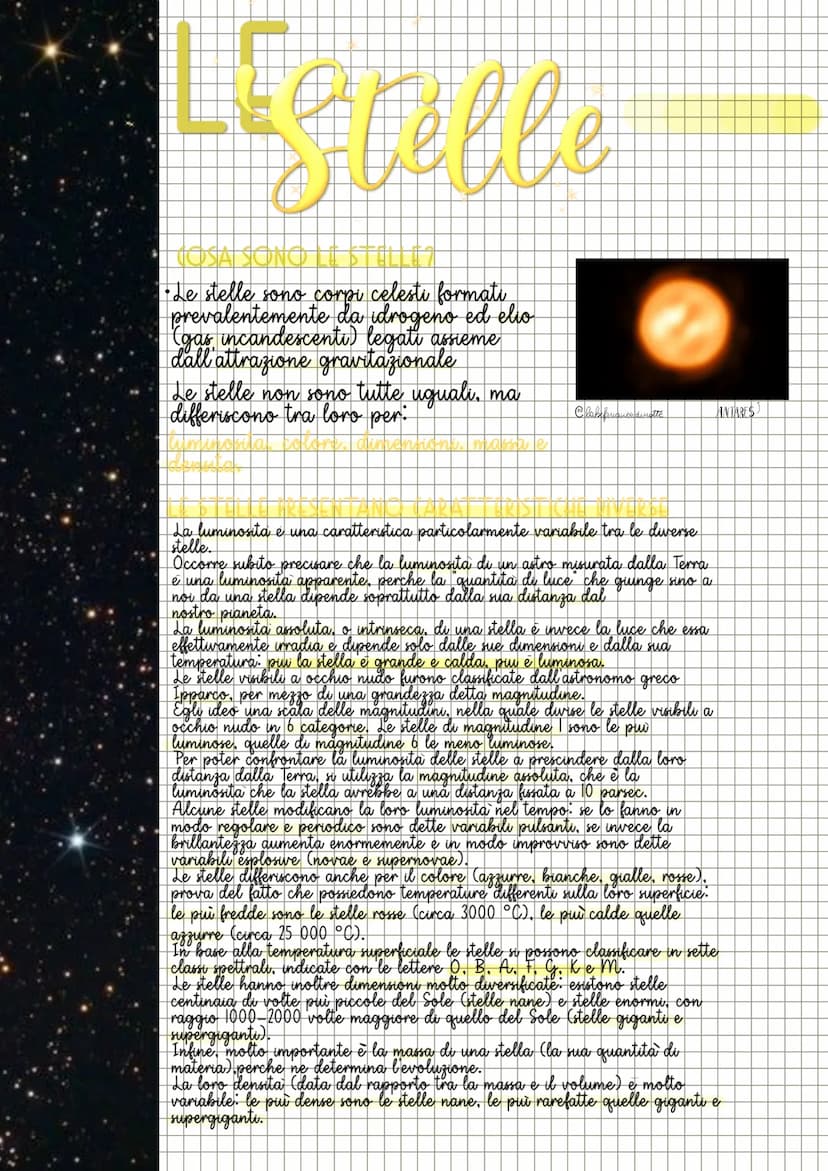 LE Stelle
COSA SONO LE STELLE?
•Le stelle sono corpi celesti formati
prevalentemente da idrogeno ed elio
(gas incandescenti) legati assieme
dall'attrazione gravitazionale
Le stelle non sono tutte uguali, ma
differiscono tra loro per:
luminosità, colore, dimensioni, massa e
densità.
ANTARES
LE STELLE PRESENTANO CARATTERISTICHE DIVERSE
La luminosità è una caratteristica particolarmente variabile tra le diverse
stelle.
Occorre subito precisare che la luminosità di un astro misurata dalla Terra
è una luminosità apparente, perché la "quantità di luce" che giunge sino a
noi da una stella dipende soprattutto dalla sua distanza dal
nostro pianeta.
La luminosità assoluta, o intrinseca, di una stella è invece la luce che essa
effettivamente irradia e dipende solo dalle sue dimensioni e dalla sua
temperatura: più la stella è grande e calda, più è luminosa.
Le stelle visibili a occhio nudo furono classificate dall'astronomo greco
Ipparco, per mezzo di una grandezza detta magnitudine.
Egli ideò una scala delle magnitudini, nella quale divise le stelle visibili a
occhio nudo in 6 categorie. Le stelle di magnitudine 1 sono le più
luminose, quelle di magnitudine 6 le meno luminose.
Per poter confrontare la luminosità delle stelle a prescindere dalla loro
distanza dalla Terra, si utilizza la magnitudine assoluta, che è la
luminosità che la stella avrebbe a una distanza fissata a 10 parsec.
Alcune stelle modificano la loro luminosità nel tempo: se lo fanno in
modo regolare e periodico sono dette variabili pulsanti, se invece la
brillantezza aumenta enormemente e in modo improvviso sono dette
variabili esplosive (novae e supernovae).
Le stelle differiscono anche per il colore (azzurre, bianche, gialle, rosse),
prova del fatto che possiedono temperature differenti sulla loro superficie:
le più fredde sono le stelle rosse (circa 3000 °C), le più calde quelle
azzurre (circa 25 000 °C).
In base alla temperatura superficiale le stelle si possono classificare in sette
classi spettrali, indicate con le lettere O, B, A, F, G, K e M.
Le stelle hanno inoltre dimensioni molto diversificate: esistono stelle
centinaia di volte più piccole del Sole (stelle nane) e stelle enormi, con
raggio 1000-2000 volte maggiore di quello del Sole (stelle giganti e
supergiganti).
Infine, molto importante è la massa di una stella (la sua quantità di
materia),perché ne determina l'evoluzione.
La loro densità (data dal rapporto tra la massa e il volume) è molto
variabile: le più dense sono le stelle nane, le più rarefatte quelle giganti e
supergiganti.